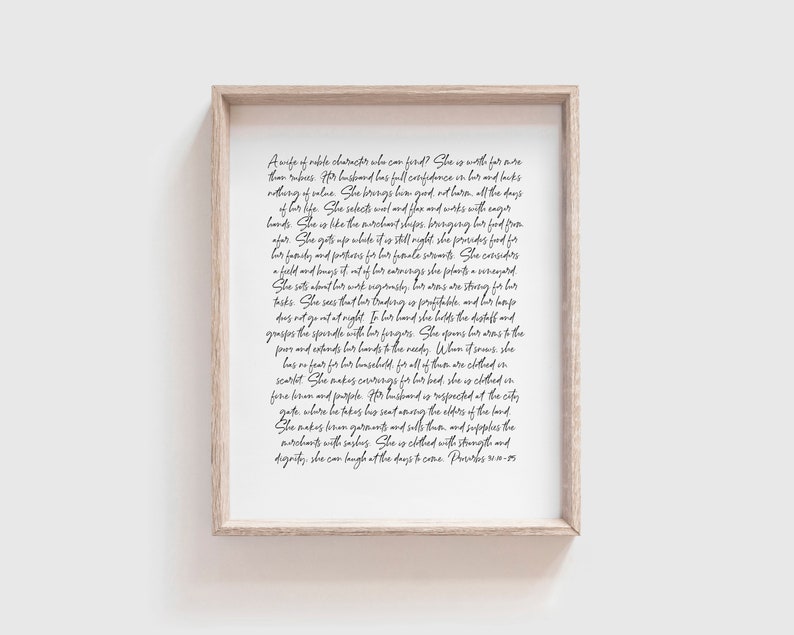 A wife of noble character who can find? She is worth far more
than rubies. Her husband has full confidence in her and lacks
nothing of value. She brings him good, not harm, all the days
of her life. She selects wool and flax and works with eager
hands. She is like the merchant ships, bringing her food from
afar. She gets up while it is still night, she provides food for
her family and portions for her female servants. She considers
a field and buys it, out of her earnings she plants a vineyard.
She sets about her work vigorously, her arms are strong for her
tasks. She sees that her trading is profitable, and her lamp
does not go out at night. In her hand she holds the distaff and
grasps the spindle with her fingers. She opens her arms to the
poor and extends her hands to the needy. When it snows, she
has no fear for her household; for all of them are clothed in
scarlet. She makes coverings for her bed, she is clothed in
fine linen and purple. Her husband is respected at the city
gate, where he takes his seat among the elders of the land.
She makes linen garments and sells them, and supplies the
merchants with sashes. She is clothed with strength and
dignity; she can laugh at the days to come. Proverbs 31:10-25